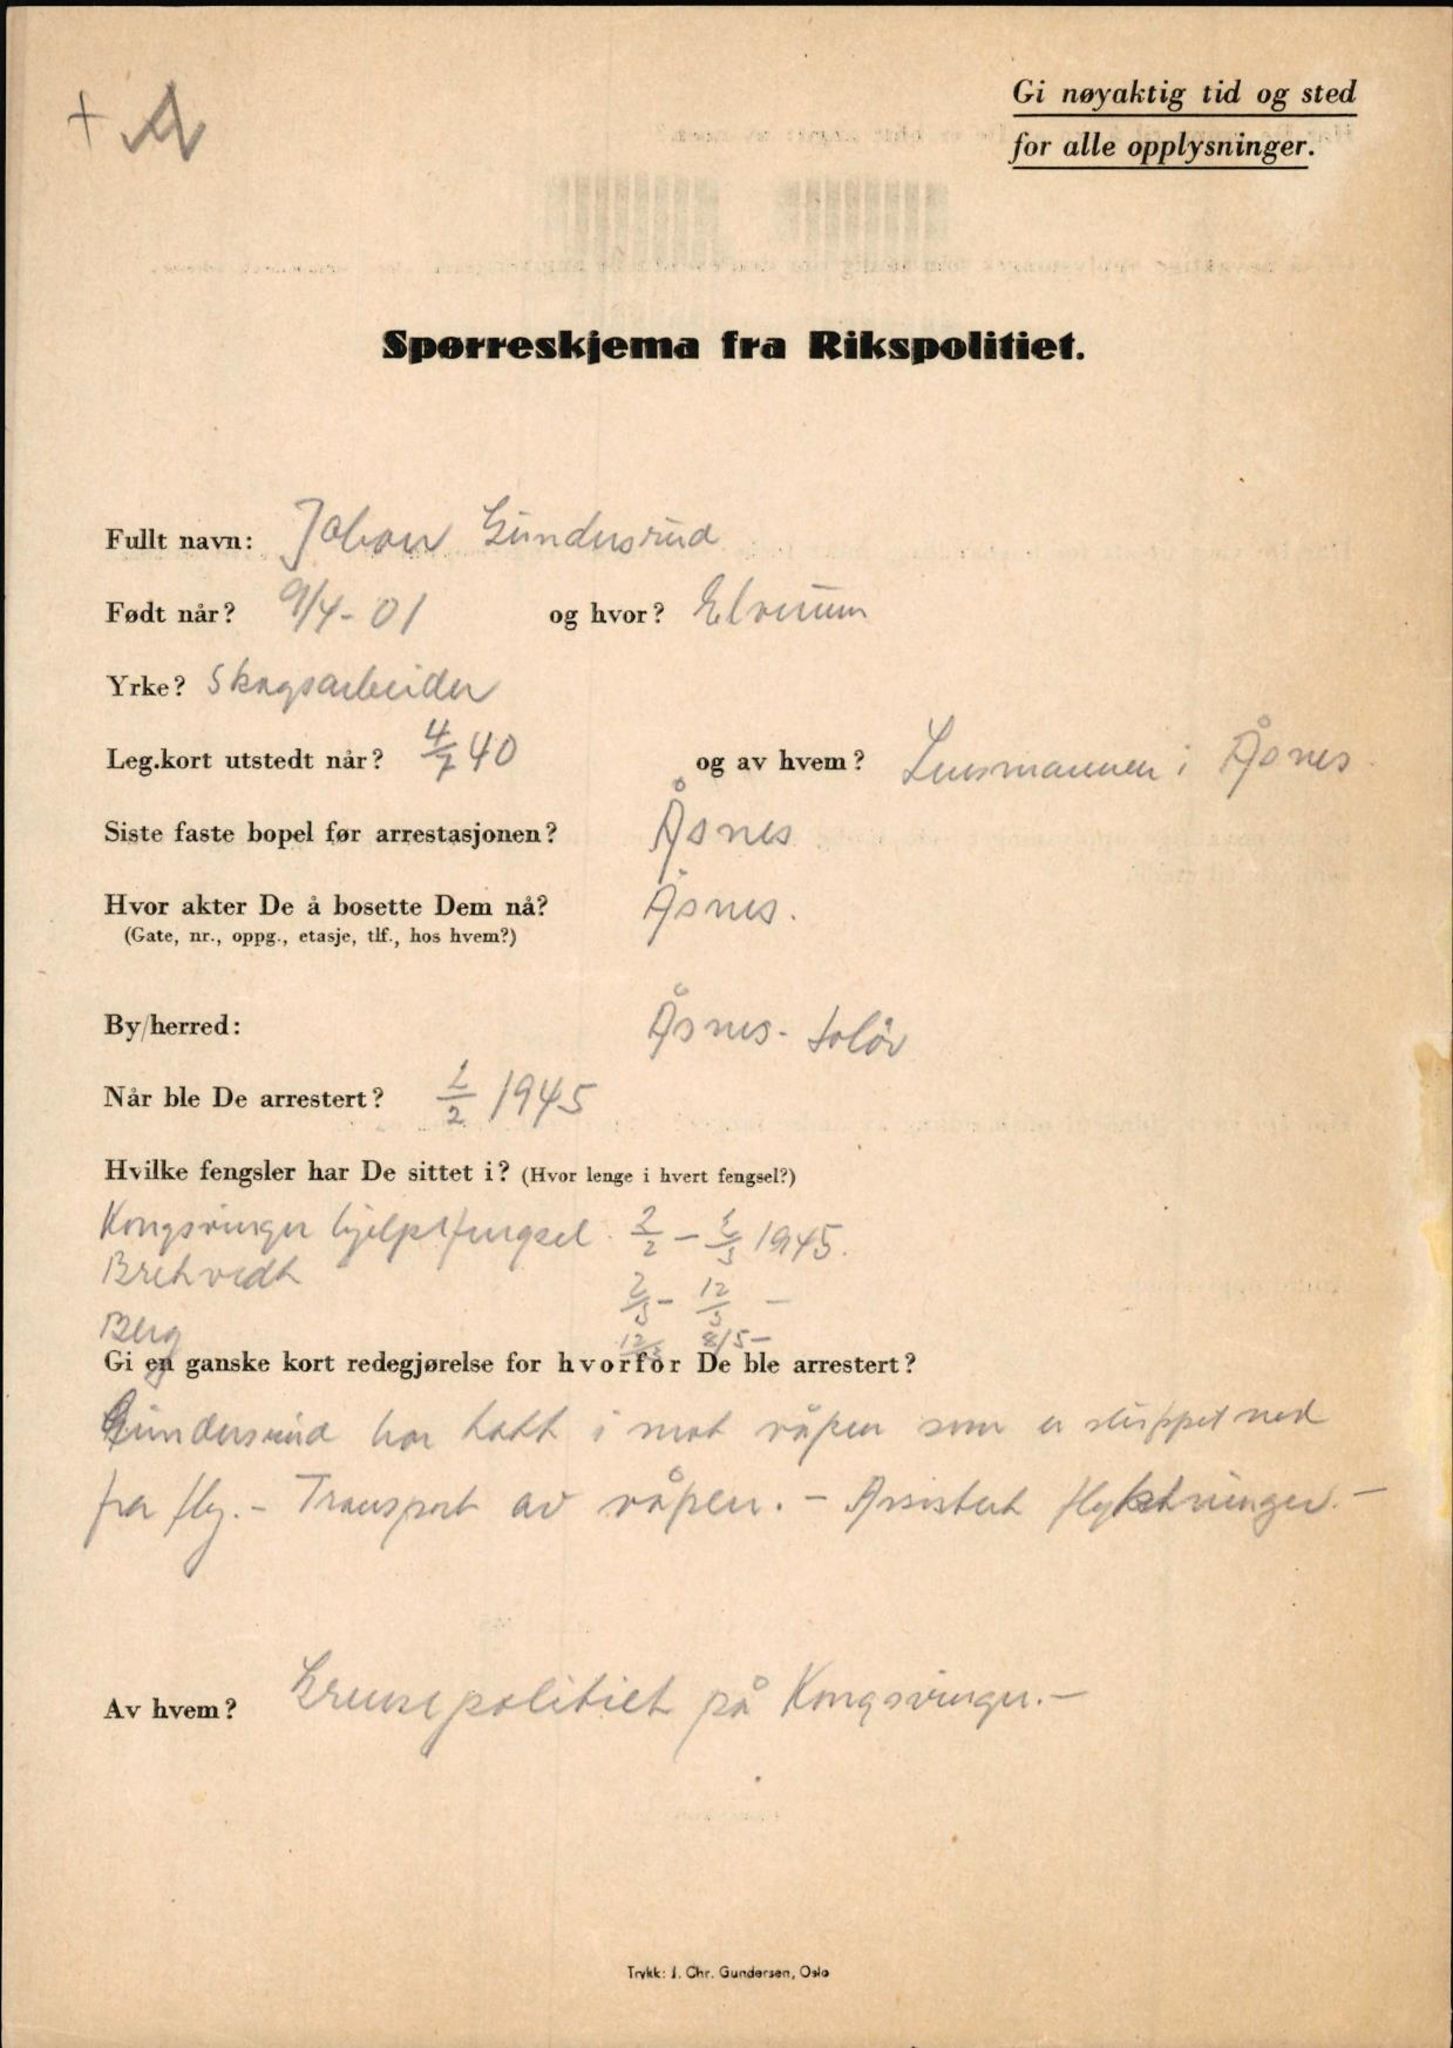 + A
Gi nøyaktig tid og sted
for alle opplysninger.
Spørreskjema fra Rikspolitiet.
Fullt navn: Johan Gundersrud
Født når? 9/4-01 og hvor? Elverum
Yrke? Skogsarbeider
Leg.kort utstedt når? 4/7 40 og av hvem? Lensmannen i Åsnes
Siste faste bopel før arrestasjonen? Åsnes
Hvor akter De å bosette Dem nå? Åsnes.
(Gate, nr., oppg., etasje, tlf., hos hvem?)
By/herred: Åsnes - Solör
Når ble De arrestert? 1/2 1945
Hvilke fengsler har De sittet i? (Hvor lenge i hvert fengsel?)
Kongsvinger hjelpefengsel. 2/2 - 2/3 1945.
Bretvedt 2/3 - 12/3 -
Berg 12/3 8/5 -
Gi en ganske kort redegjørelse for hvorfor De ble arrestert?
Gundersrud har tatt i mot våpen som er sluppet ned
fra fly. - Transport av våpen. - Assistert flyktninger. -
Av hvem? Grensepolitiet på Kongsvinger. -
Trykk: J. Chr. Gundersen, Oslo